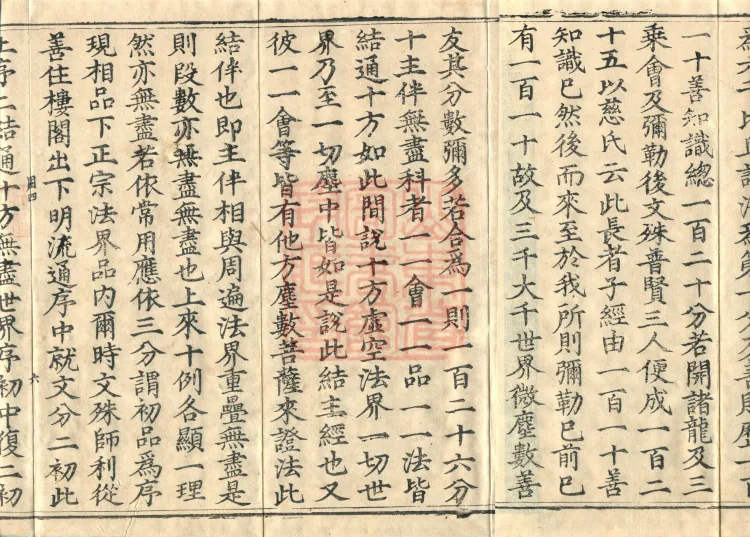 一十善知識總一百二十分若開諸龍及三
乘會及彌勒後文殊普賢三人便成一百二
十五以慈氏云此長者子經由一百一十善
知識已然後而來至於我所則彌勒已前已
有一百一十故及三千大千世界微塵數善
友其分數彌多若合為一則一百二十六分
十主伴無盡科者一一會一一品一一法皆
結通十方如此間說十方虛空法界一切世
界乃至一切塵中皆如是說此結主經也又
彼一一會等皆有他方塵數菩薩來證法此
結伴也即主伴相與周遍法界重疊無盡是
則段數亦無盡無盡也上來十例各顯一理
然亦無盡若依常用應依三分謂初品為序
現相品下正宗法界品內爾時文殊師利從
善住樓閣出下明流通序中就文分二初此
上序二結通十方無盡世界序初中復二初